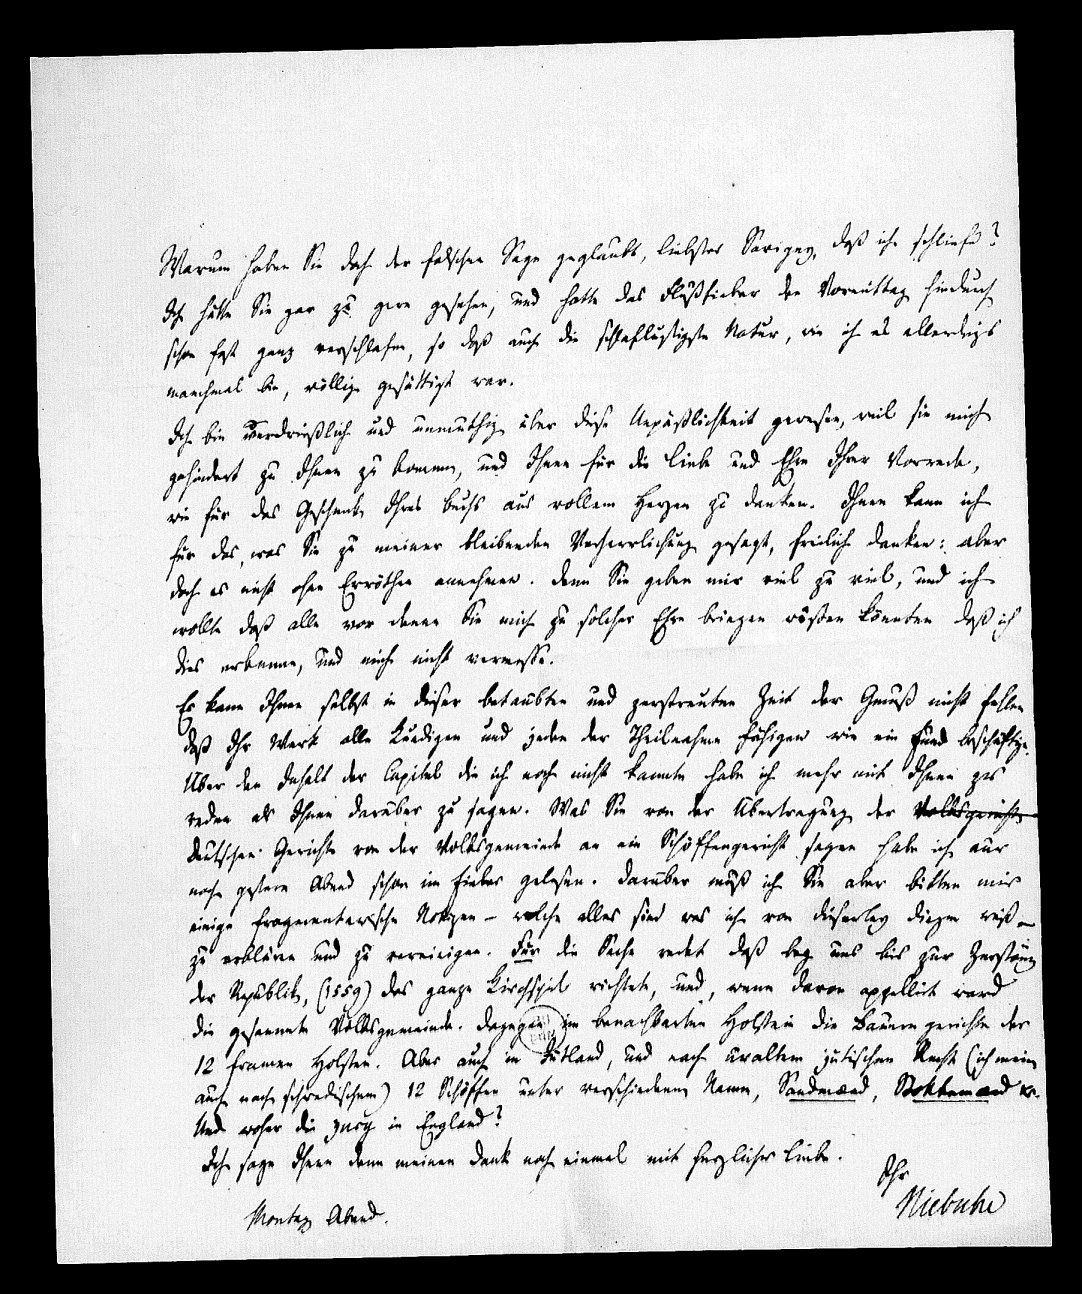 Warum haben Sie doch der falschen Sage geglaubt, liebster Savigny, daß ich schliefe?
Ich hätte Sie gar zu gern gesehen, und hatte das Flußfieber den Vormittag hindurch
schon fast ganz verschlafen, so daß auch die schlaflustigste Natur, wie ich es allerdings
manchmal bin, völlig gesättigt war.
Ich bin verdrießlich und unmuthig über diese Unpäßlichkeit gewesen, weil sie mich
gehindert zu Ihnen zu kommen, und Ihnen für die Liebe und Ehre Ihrer Vorrede,
wie für das Geschenk Ihres Buchs aus vollem Herzen zu danken. Ihnen kann ich
für das, was Sie zu meiner bleibenden Verherrlichung gesagt, freilich danken: aber
doch es nicht ohne Erröthen annehmen. Denn Sie geben mir viel zu viel, und ich
wollte daß alle vor denen Sie mich zu solcher Ehre bringen wüßten könnten daß ich
dies erkenne, und mich nicht vermesse.
Es kann Ihnen selbst in dieser betäubten und zerstreuten Zeit der Genuß nicht fehlen
daß Ihr Werk alle Kundigen und jeden der Theilnahme fähigen wie ein Fund beschäftige.
Über den Inhalt der Capitel die ich noch nicht kannte habe ich mehr mit Ihnen zu
reden als Ihnen darüber zu sagen. Was Sie von der Übertragung der Volksgerichte
deutschen Gerichte von der Volksgemeinde an ein Schöffengericht sagen habe ich nur
noch gestern Abend schon im Fieber gelesen. Darüber muß ich Sie aber bitten mir
einige fragmentarische Notizen – welche alles sind was ich von dieserley Dingen weiß –
zu erklären und zu vereinigen. Für die Sache redet daß bey uns bis zur Zerstörung
der Republik, (1559) das ganze Kirchspiel richtete, und, wenn davon appellirt ward
die gesammte Volksgemeinde. Dagegen im benachbarten Holstein die Bauerngerichte der
12 frommen Holsten. Aber auch in Jütland, und nach uraltem jütischen Recht (ich meine
auch nach schwedischem) 12 Schöffen unter verschiedenen Namen, Sandmænd, Stokkemænd &c.
Und woher die Jury in England?
Ich sage Ihnen denn meinen Dank noch einmal mit herzlicher Liebe.
Ihr
Niebuhr
Montag Abend.